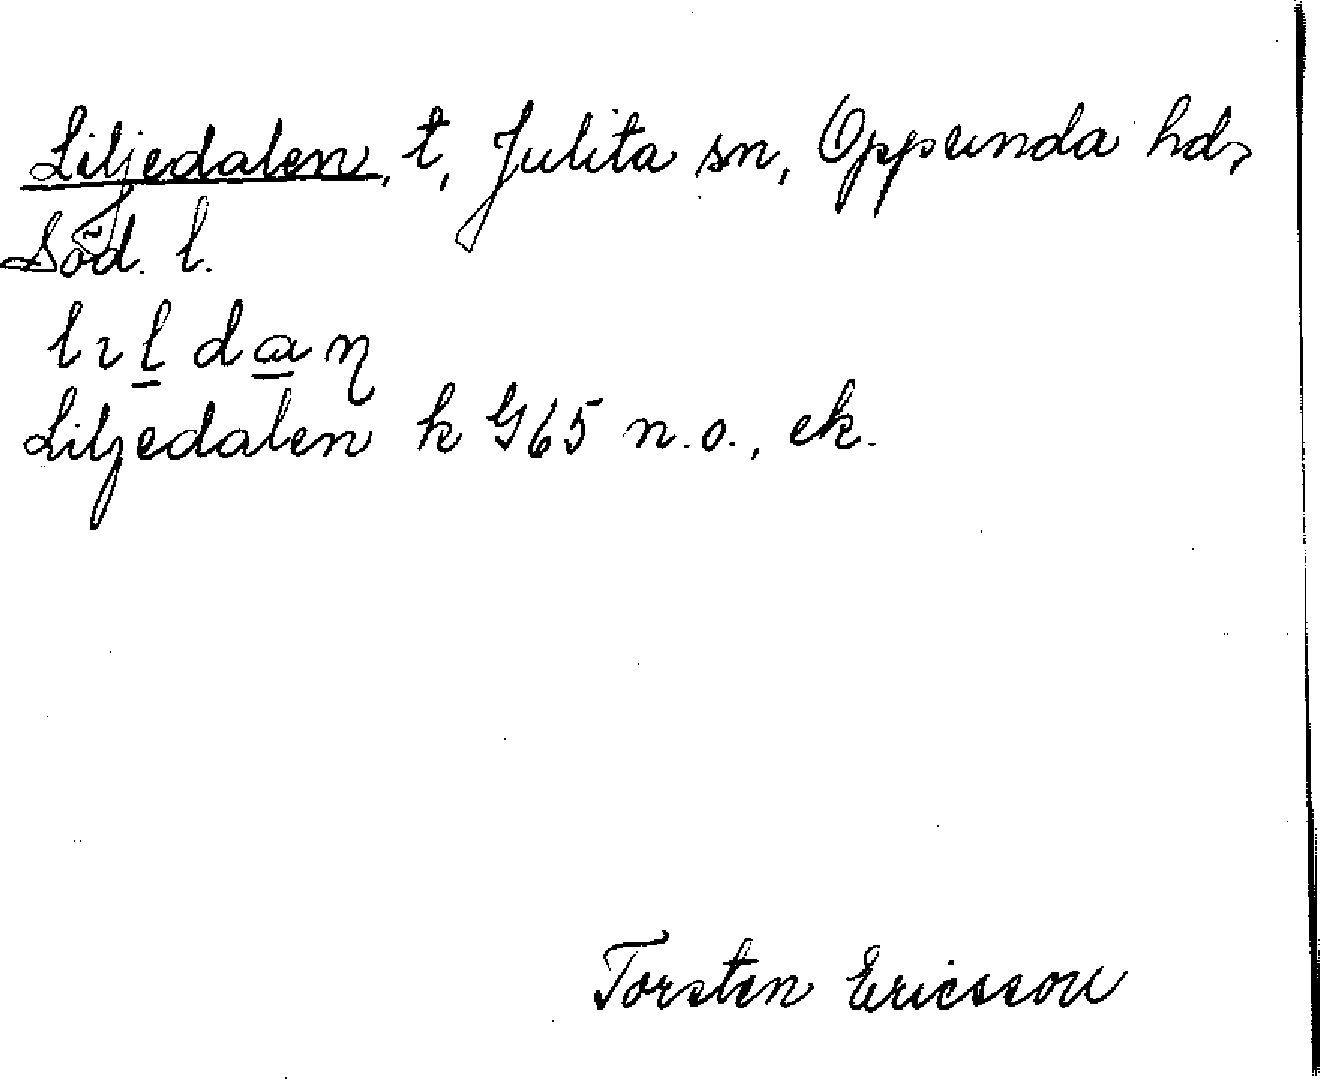 Liljedalen, t, Julita sn, Oppunda hd,
Söd. l.
Liljedalen k G65 n.o., ek.
Torsten Ericsson